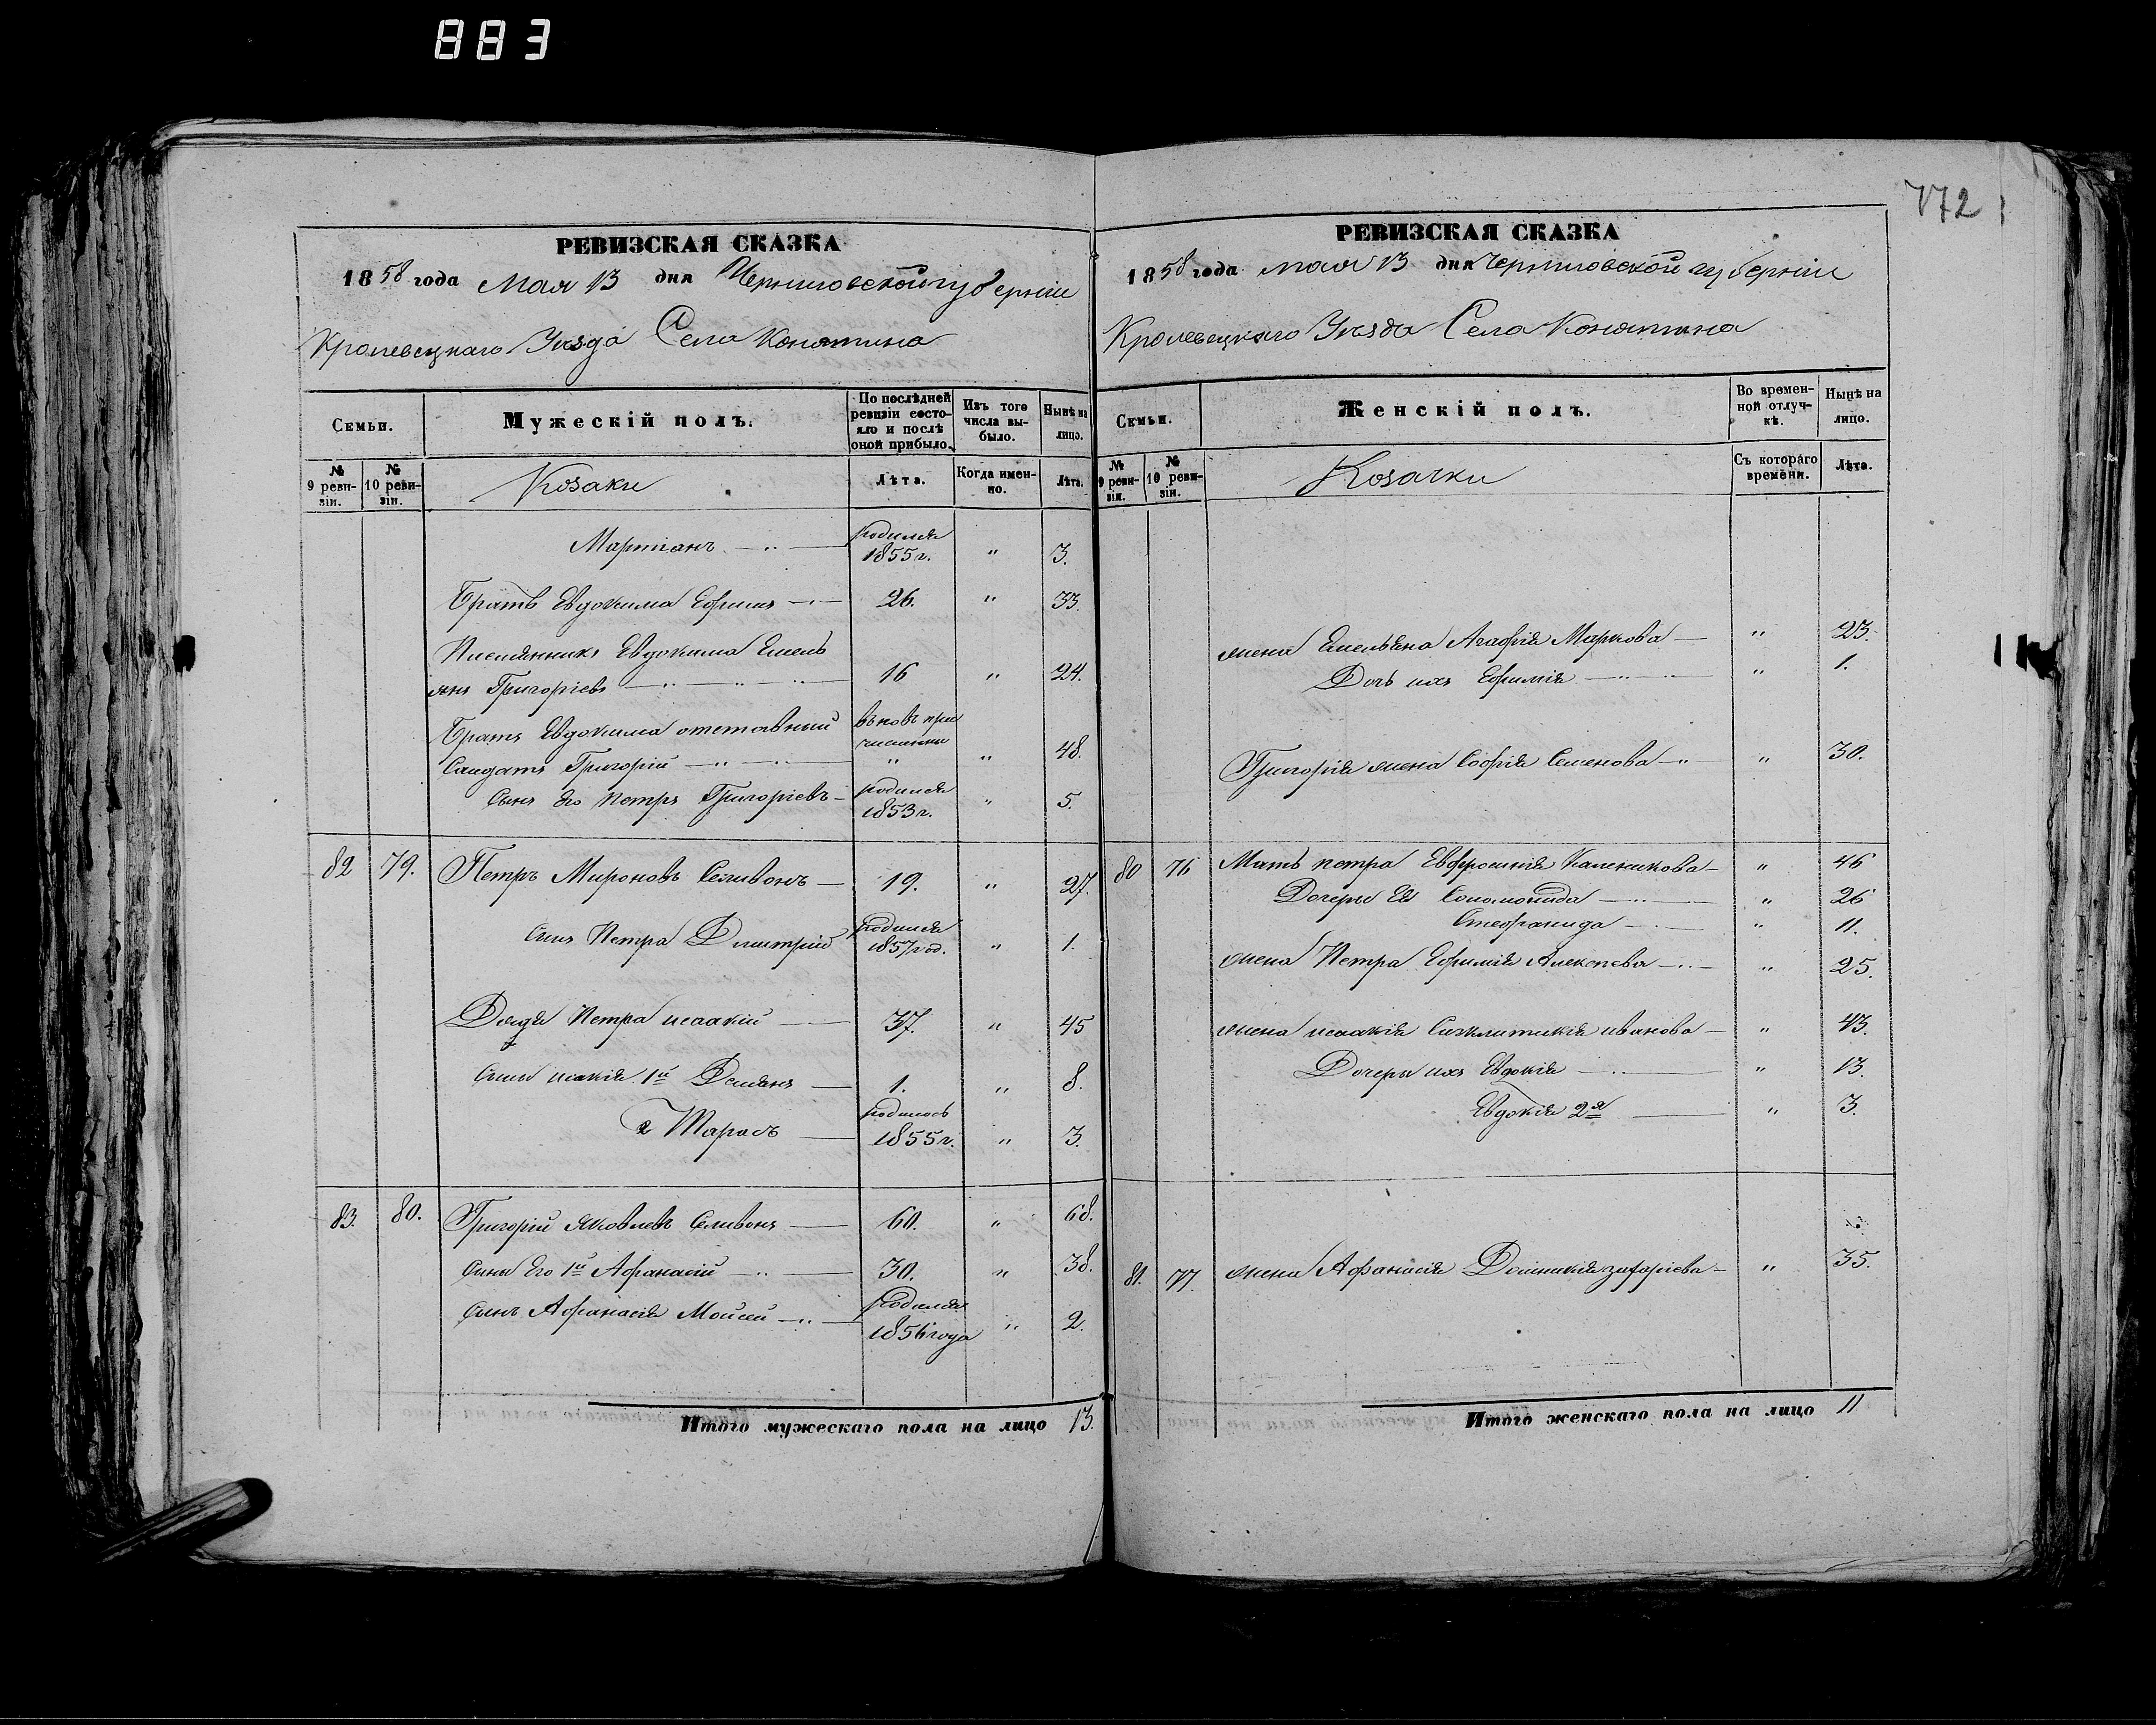 883
772
РЕВИЗСКАЯ СКАЗКА
1858 года Мая 13 дня Черниговской губерніи
Кролевецкаго Уезда Села Конятина
Семьи.
Мужескій полъ.
По послѣдней ревизіи состояло и послѣ оной прибыло.
Изъ того числа выбыло.
Нынѣ на лицо.
№ 9 ревизіи.
№ 10 ревизіи.
Козаки
Лѣта.
Когда именно.
Лѣта.
Мартіанъ — родился 1855 г. " 3.
Братъ Евдокима Ефимъ — 26. " 33.
Племянникъ Евдокима Емель
янъ Григоріевъ — 16 " 24.
Братъ Евдокима отставный вновь при
численны
Салдатъ Григорій — " " 48.
Сынъ его Петръ Григоріевъ — родился 1853 г. " 5.
82 79. Петръ Мироновъ Селивонъ — 19. " 27.
Сынъ Петра Дмитрій родился 1857 год. " 1.
Дядя Петра исаакій — 37. " 45
Сыны исакія 1й Демянъ — 1. " 8.
2 Тарасъ — родилось 1855 г. " 3.
83. 80. Григорій Яковлевъ Селивонъ — 60. " 68.
Сыны Его 1й Афанасій — 30. " 38.
Сынъ Афанасія Мойсей — родился 1856 года " 2.
Итого мужескаго пола на лицо 13.
РЕВИЗСКАЯ СКАЗКА
1858 года мая 13 дня Черниговской губерніи
Кролевецкаго Уезда Села Конятина
Семьи.
Женскій полъ.
Во временной отлучкѣ.
Нынѣ на лицо.
№ 9 ревизіи.
№ 10 ревизіи.
Козачки
Съ котораго времени.
Лѣта.
жена Емельяна Агафія Маркова — " 23.
Дочь ихъ Ефимія — " 1.
Григорія жена Софія Семенова — " 30.
80 76 Мать петра Евфросинія Каленикова — " 46
Дочеры Ея Соломонида — " 26
Стефанида — " 11.
жена Петра Ефимія Алексѣева — " 25.
жена исаакія Синклитикія иванова — " 43.
Дочеры ихъ Евдокія — " 13.
Евдокія 2я — " 3.
81. 77. жена Афанасія Домникія захаріева — " 35.
Итого женскаго пола на лицо 11